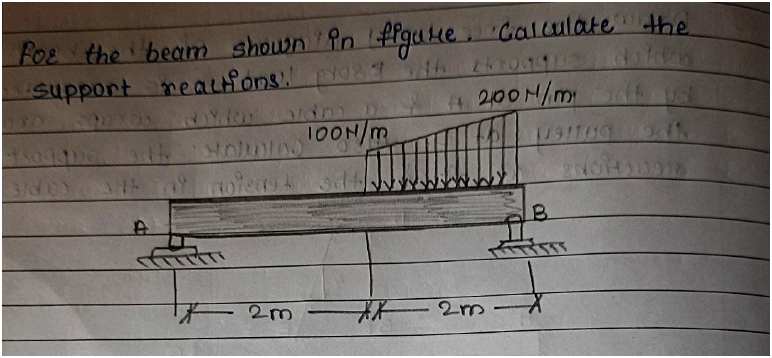 For the beam shown in figure. Calculate the
support reactions.
200N/m
100N/m
A
B
2m
2m